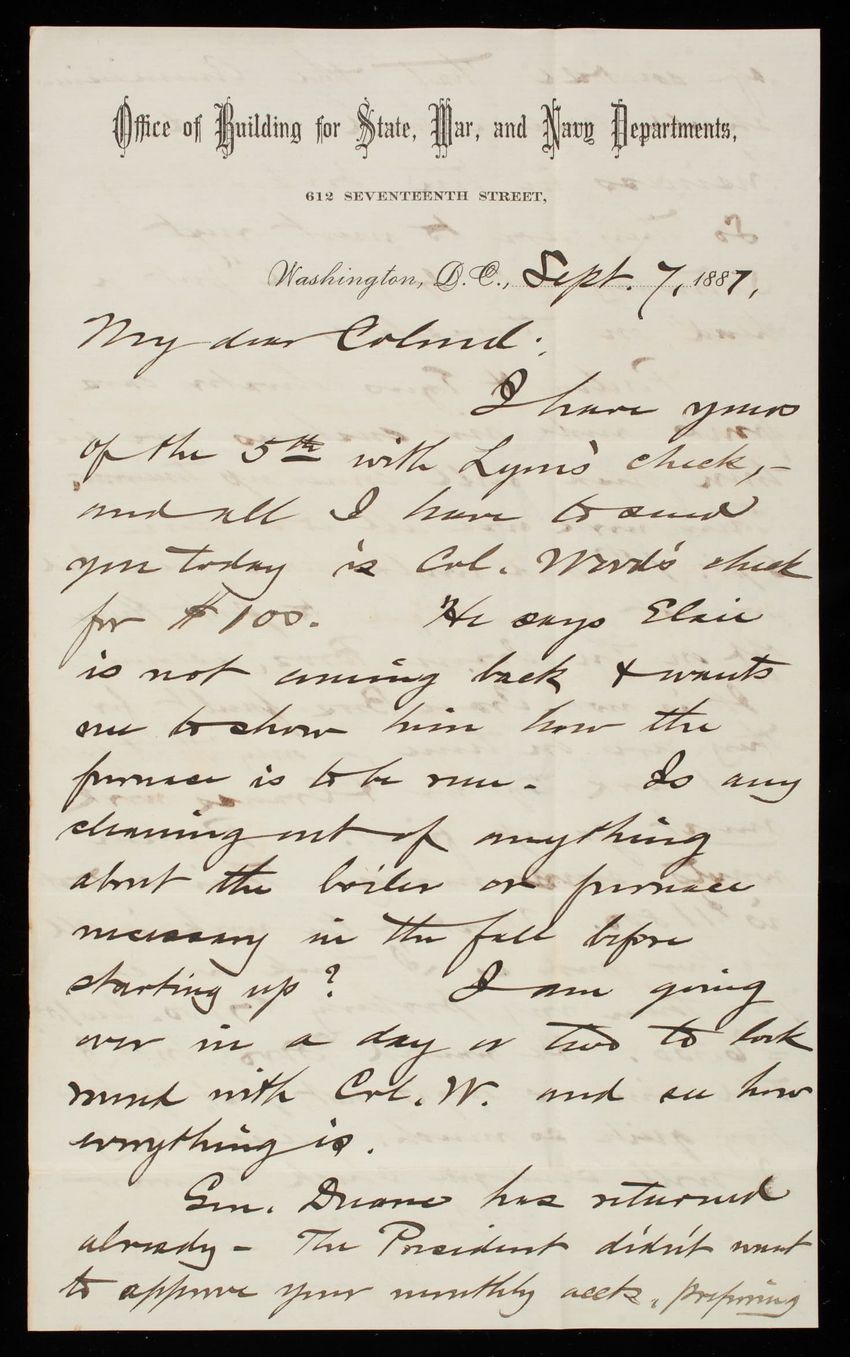 Office of Building for State, War, and Navy Departments,
612 SEVENTEENTH STREET,
Washington, D. C., Sept. 7, 1887,
My dear Colonel:
I have yours
of the 5th with Lym's check, –
and all I have to send
you today is Col. Word's check
for $100. He says Elsie
is not coming back & wants
me to show him how the
furnace is to be run. Is any
cleaning out of anything
about the boiler or furnace
necessary in the fall before
starting up? I am going
over in a day or two to look
round with Col. W. and see how
everything is.
Gen. Duane has returned
already – The President didn't want
to approve your monthly accts, preferring